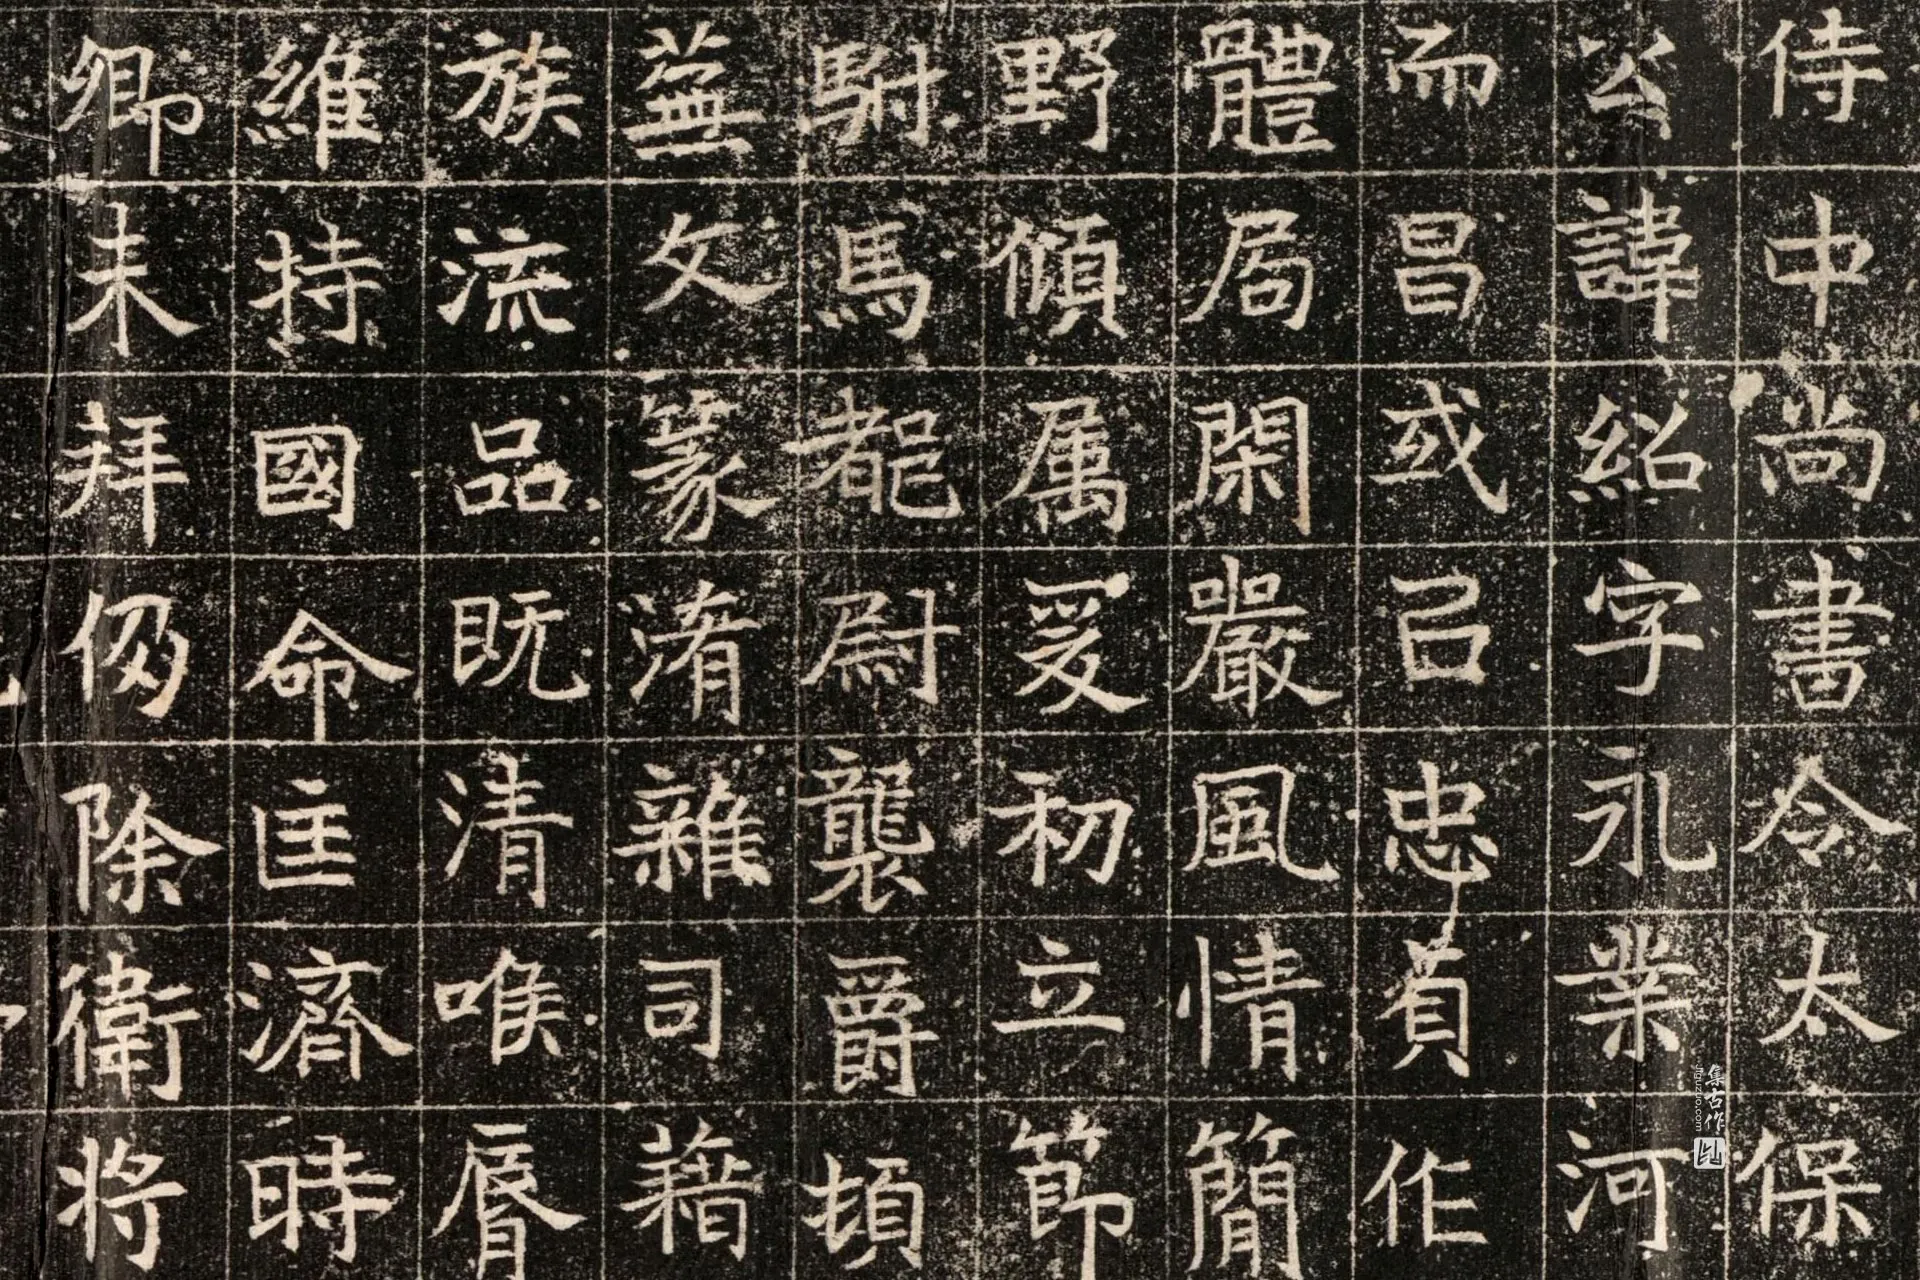 侍中尚書令太保
公諱紹字永業河
而昌或召忠貞作
體局閑嚴風情簡
野傾属爰初立節
駙馬都尉襲爵頓
蕋文篆湇雜司藉
族流品既清唯脣
維持國命匡濟時
卿未拜仍除衛將
集古作
jiguzuo.com